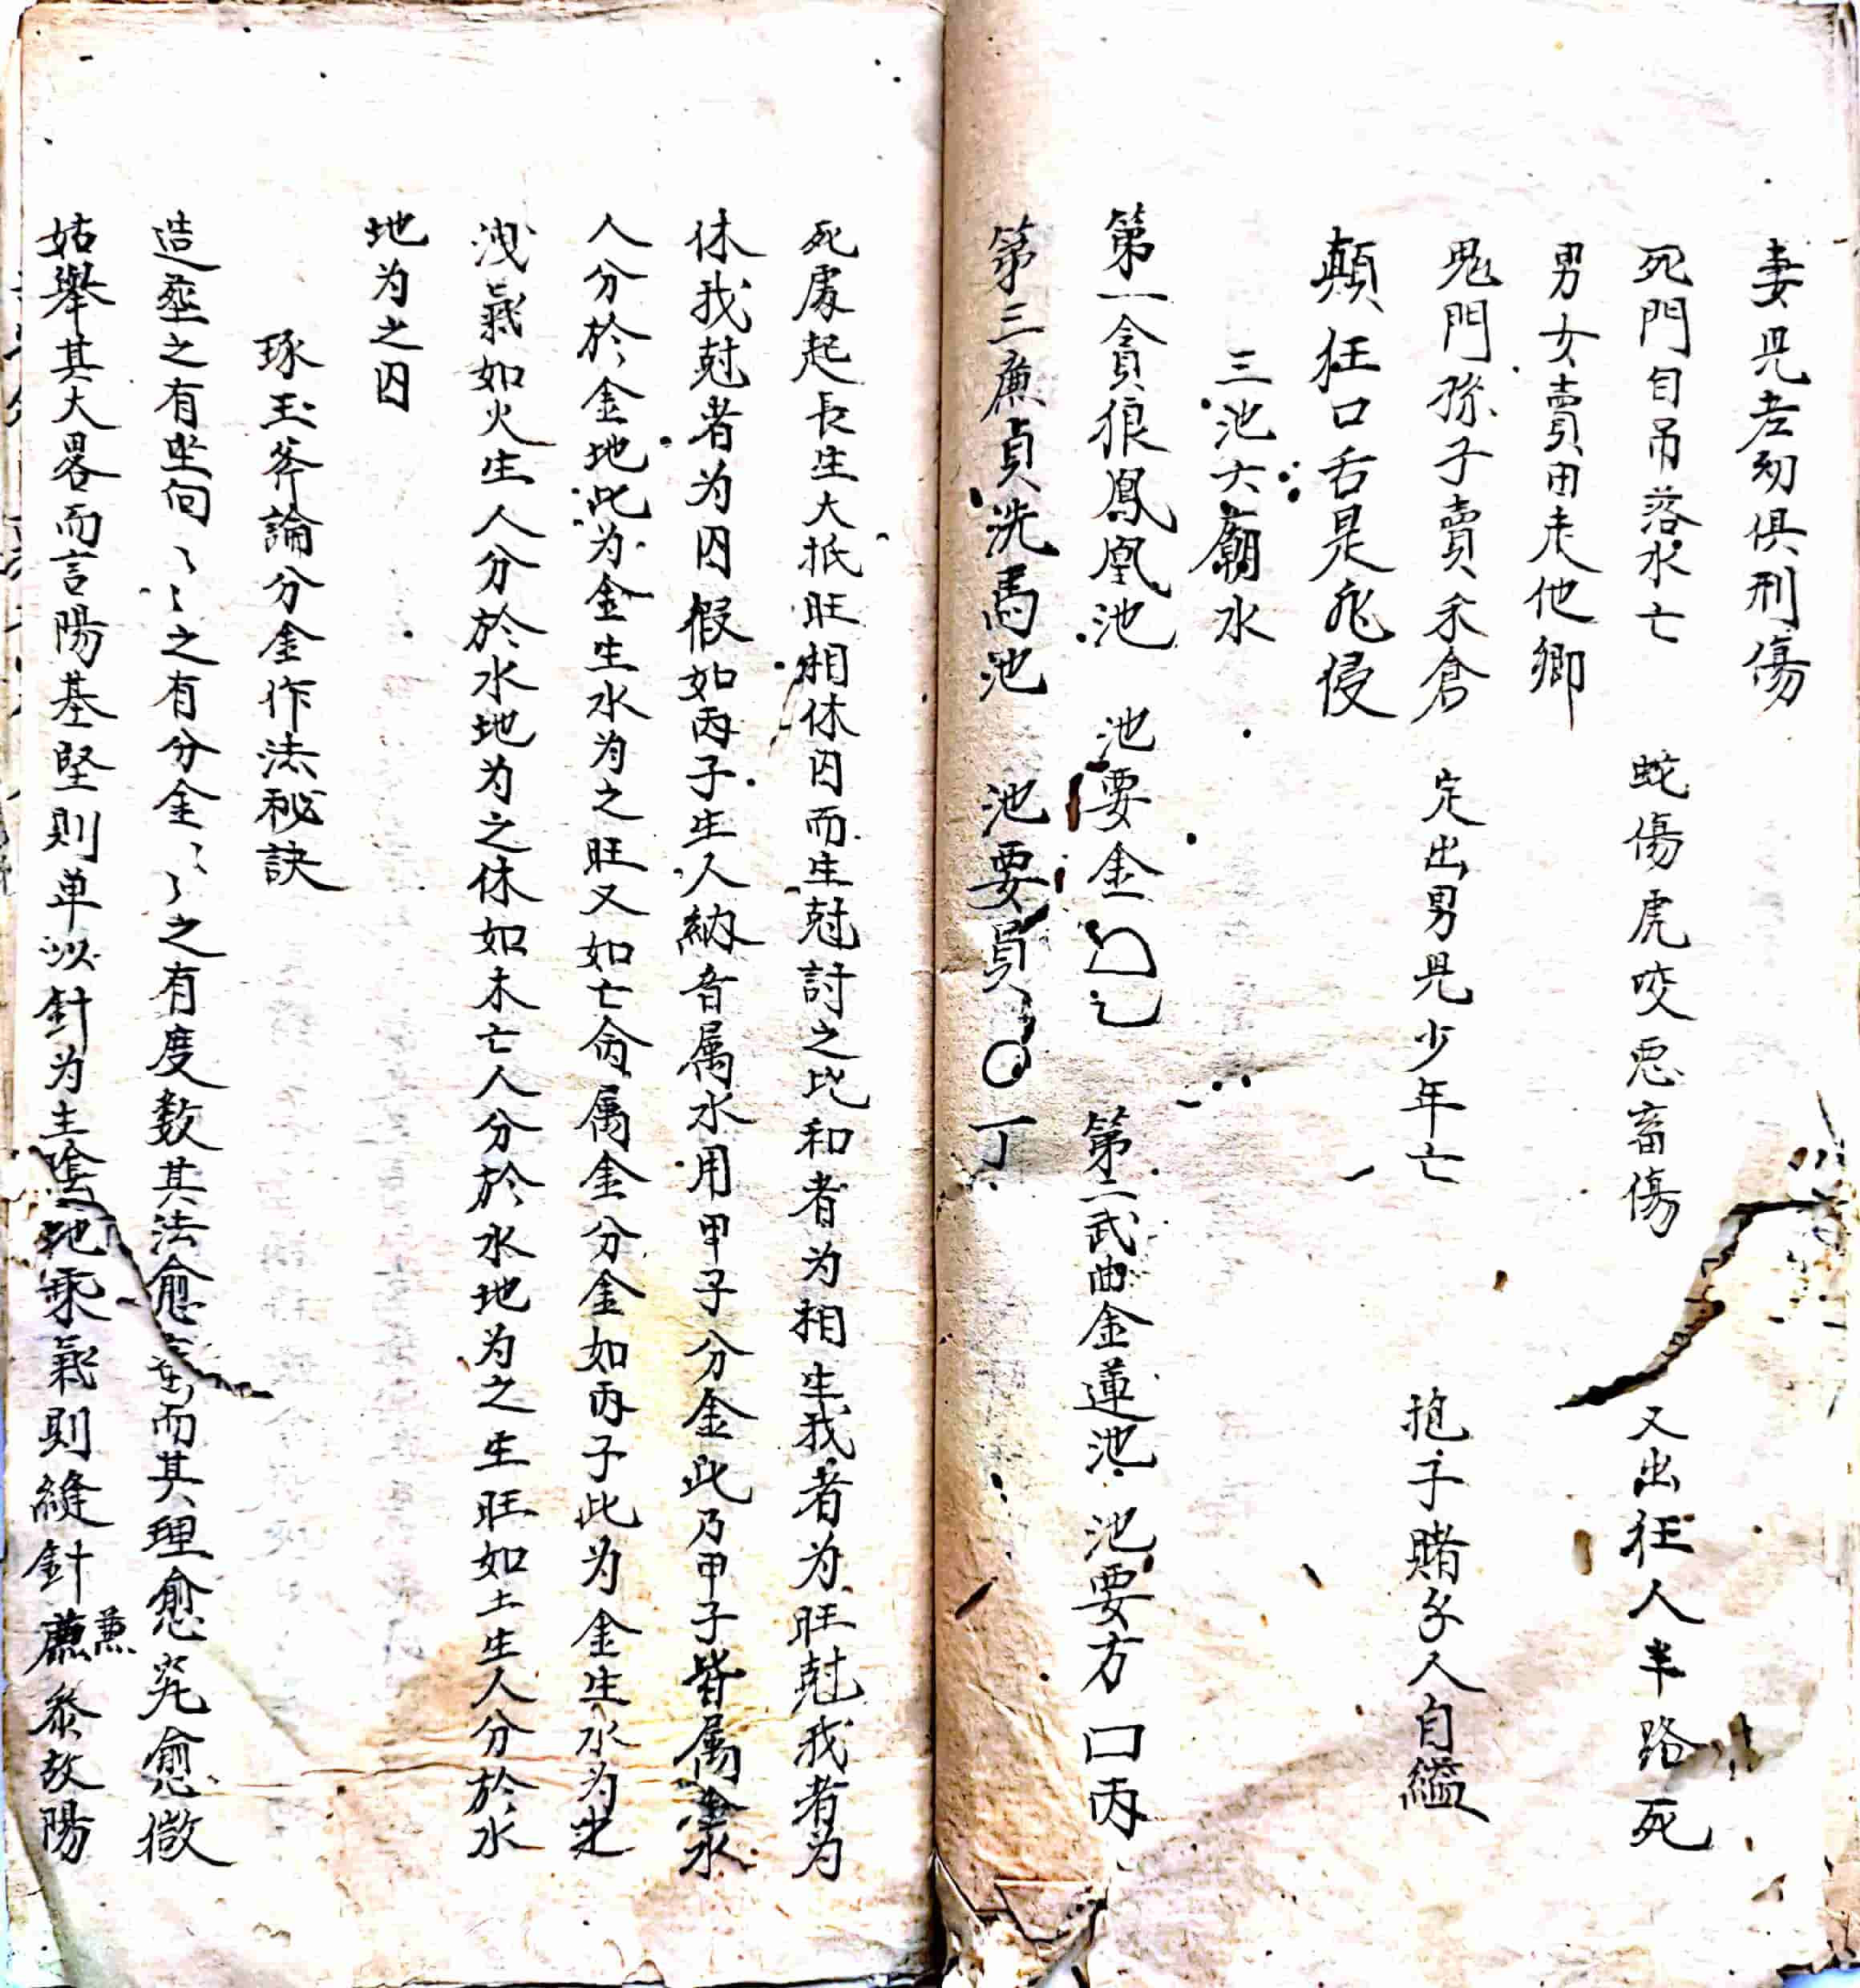 妻児老幼俱刑傷
死門自吊落水亡 蛇傷虎咬恶畜傷 又出狂人半路死
男女賣田走他鄉
鬼門孫子賣禾倉 定出男児少年亡 抱子賭錢人自縊
顛狂口舌是非侵
三池六廟水
第一貪狼鳳凰池 池要金 第二武曲金蓮池 池要方 口丙
第三廉貞洗馬池 池要員 〇 丁
死處起長生大抵旺相休囚而生尅討之比和者为相生我者为旺尅我者为
休我尅者为囚假如丙子生人納音属水用甲子分金此乃甲子皆属金水
人分於金地此为金生水为之旺又如亡命属金分金如丙子此为金生水为之
洩氣如火生人分於水地为之休如木亡人分於水地为之生旺如土生人分於水
地为之囚
琢玉斧論分金作法秘訣
造葬之有坐向〻〻之有分金〻〻之有度数其法愈而其理愈究愈微
姑舉其大畧而言陽基堅則单以針为主陰地乘氣則縫針兼参故陽